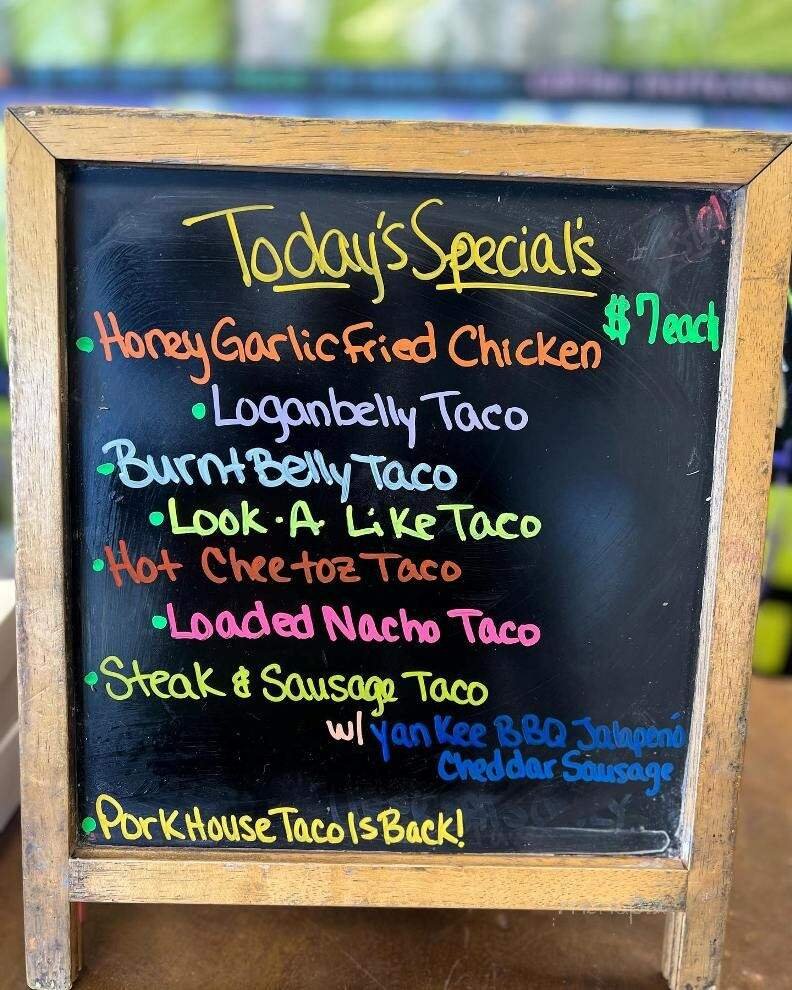 Today's Special's
$7 each
• Honey Garlic Fried Chicken
• Loganbelly Taco
• Burnt Belly Taco
• Look·A Like Taco
• Hot Cheetoz Taco
• Loaded Nacho Taco
• Steak & Sausage Taco
w/ yankee BBQ Jalapenó
Cheddar Sausage
• Pork House Taco Is Back!